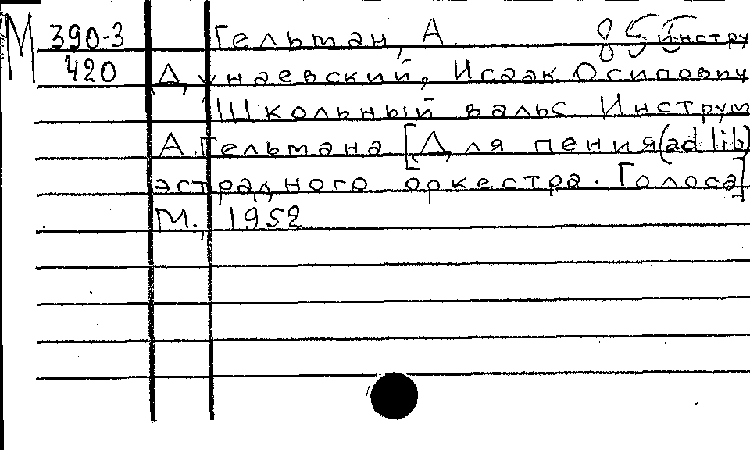 М 390-3 Гельман, А. 855 инстру
420 Дунаевский, Исаак Осипович
Школьный вальс Инструм
А.Гельмана [Для пения (ad lib)
эстрадного оркестра. Голоса]
М., 1952